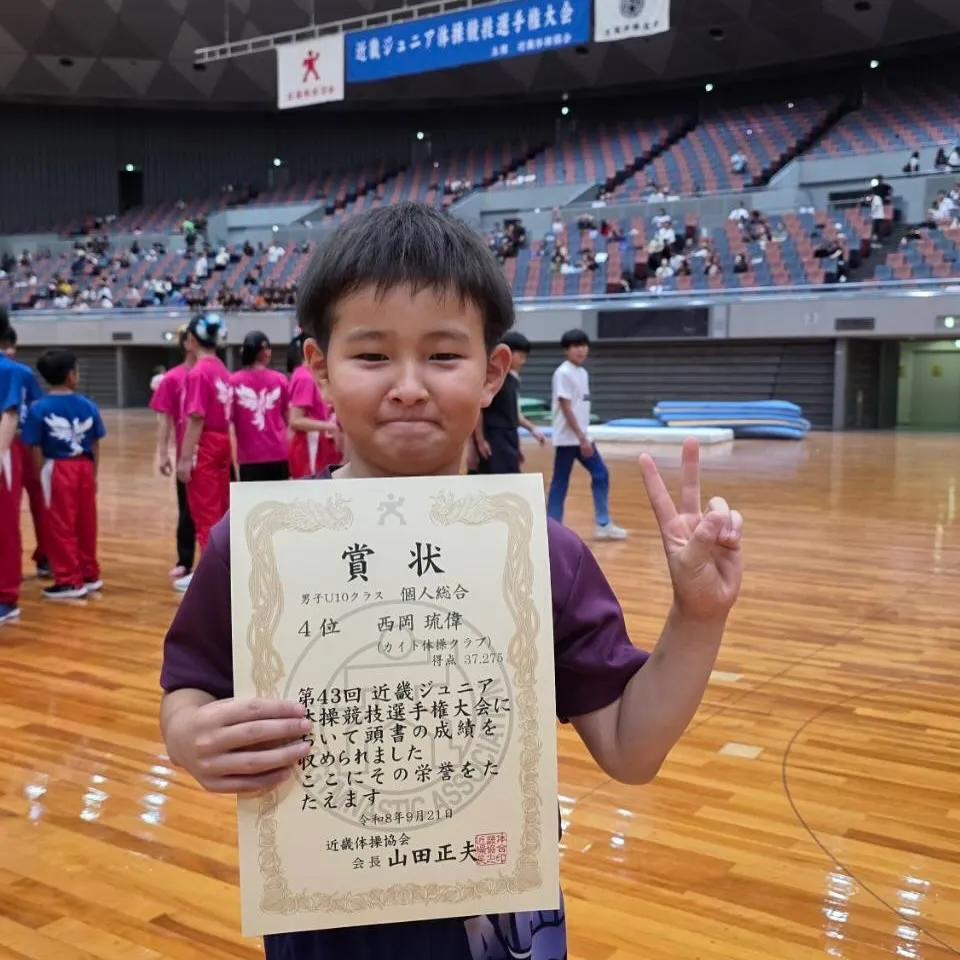 近畿ジュニア体操競技選手権大会
主催 近畿体操協会
賞状
男子U10クラス 個人総合
4位 西岡 琉偉
(カイト体操クラブ)
得点 37.275
第43回 近畿ジュニア
体操競技選手権大会に
おいて頭書の成績を
収められました
ここにその栄誉をた
たえます
令和8年9月21日
近畿体操協会
会長 山田正夫